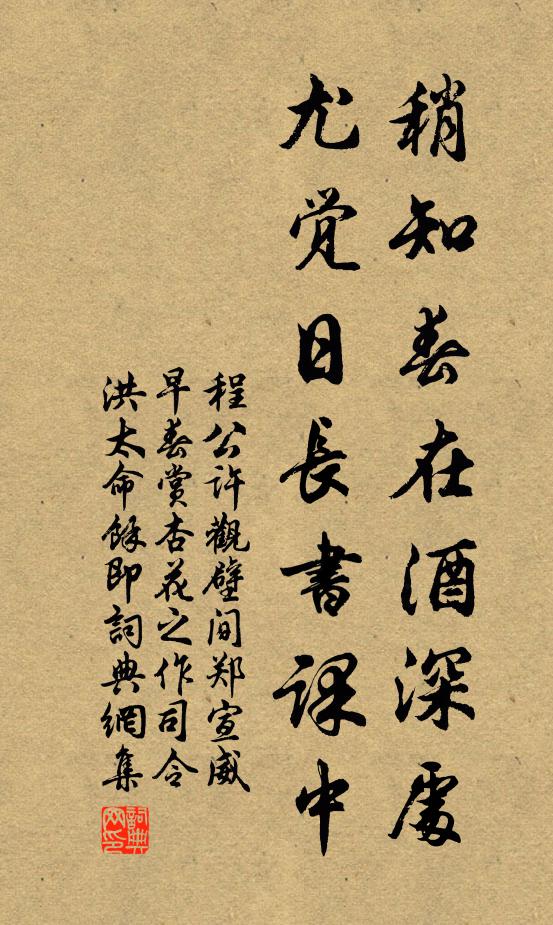 稍知春在酒深處
尤觉日長書課中
程公許觀壁间郑宣威
早春賞杏花之作司令
洪太命餘即詞典網集
詞典网印